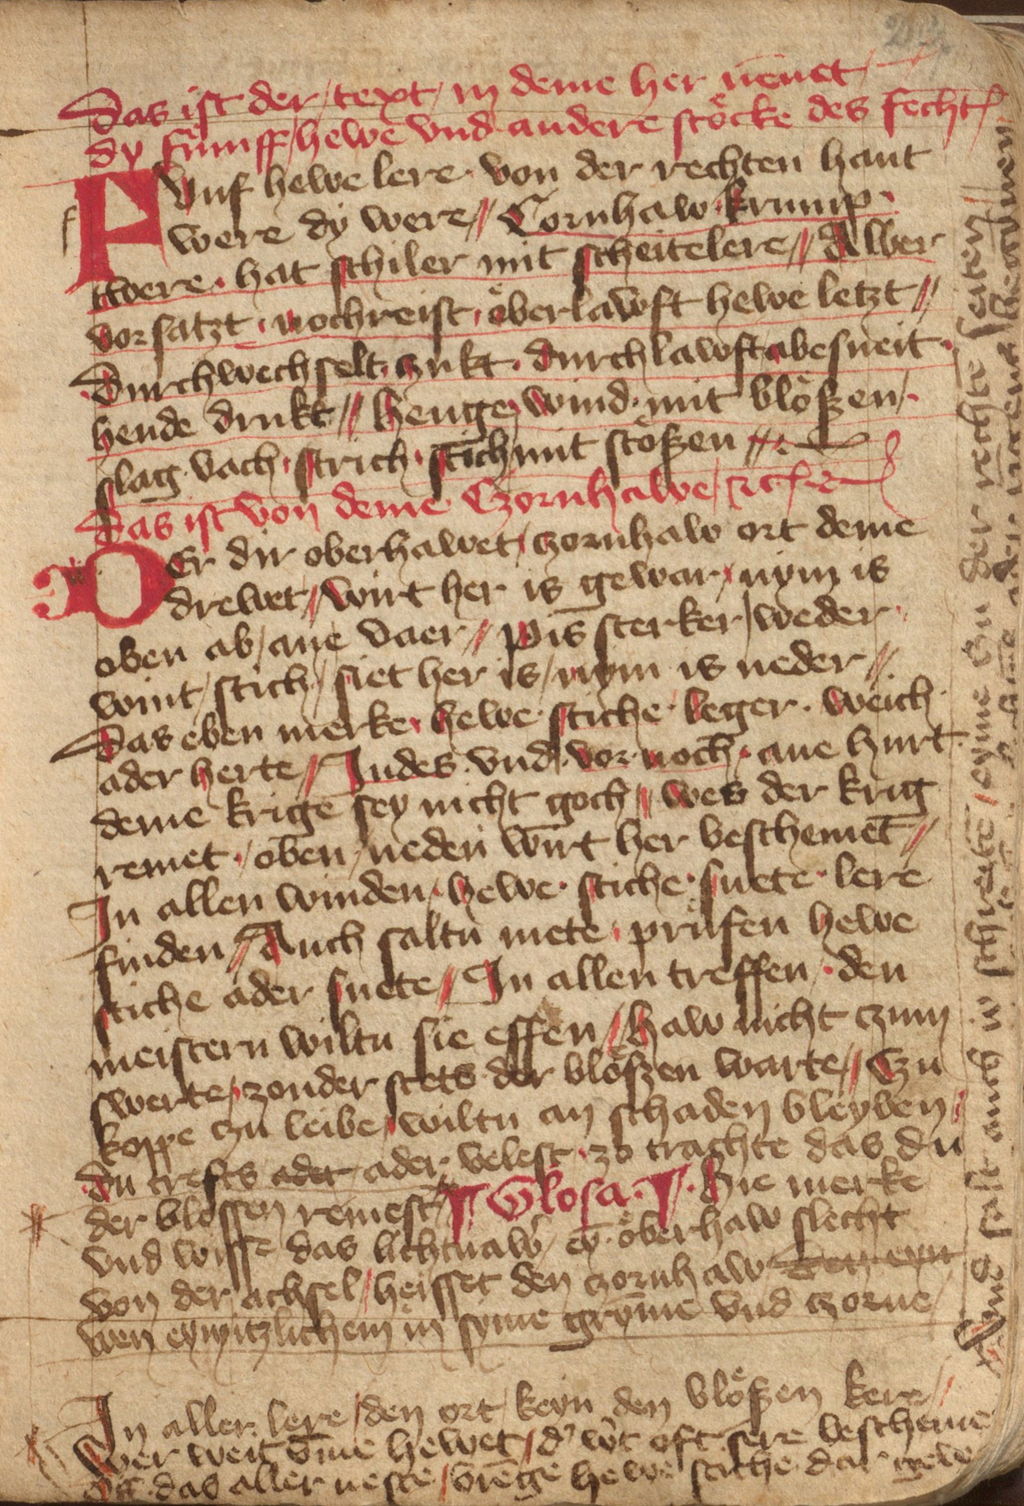 Das ist der text / in deme her nēnet
dy fuͤmff hewe vnd andere stoͤcke des fechtē
FVnf hewe lere · von der rechten hant
were dy were // Cornhaw · krump ·
twere · hat schiler mit scheitelere // Alber
vorsatzt · nochreist · oͤberlawft hewe letzt //
durchwechselt · czukt · durchlawft abesneit ·
hende drukt // henge wind · mit bloͤßen ·
slag · vach · strich · stich mit stoͤßen //
Das ist von deme Czornhawe / etc
DEr dir oberhawet / czornhaw ort deme
drewet / Wirt her is gewar / nym is
oben ab / ane vaer // Pis sterker / weder
wint / stich / siet her is / nym is neder //
Das eben merke · hewe · stiche · leger · weich
ader herte // Indes · vnd · vor noch · ane hurt ·
deme krige sey nicht goch // wes der krig
remet · oben / neden wirt her beschemet //
In allen winden · hewe · stiche · snete · lere
finden // Auch saltu mete · pruͤfen hewe
stiche ader snete // In allen treffen · den
meistern wiltu sie effen // Haw nicht czum
swerte / zonder stets der bloͤßen warte // Czu
koppe czu leibe / wiltu an schaden bleyben /
du trefts adet ader velest · zo trachte das du
der blossen remest // Glosa · Hie merke
vnd wisse das eyn oͤberhaw slecht
von der achsel / heisset den czornhaw
wen eym itzlichem in syme gryme vnd czorne
In aller lere / den ort / keyn den bloͤßen kere /
Wer weit vme hewet / d' wirt oft sere bescheme
Off das aller neste / brenge hewe stiche dar gewe